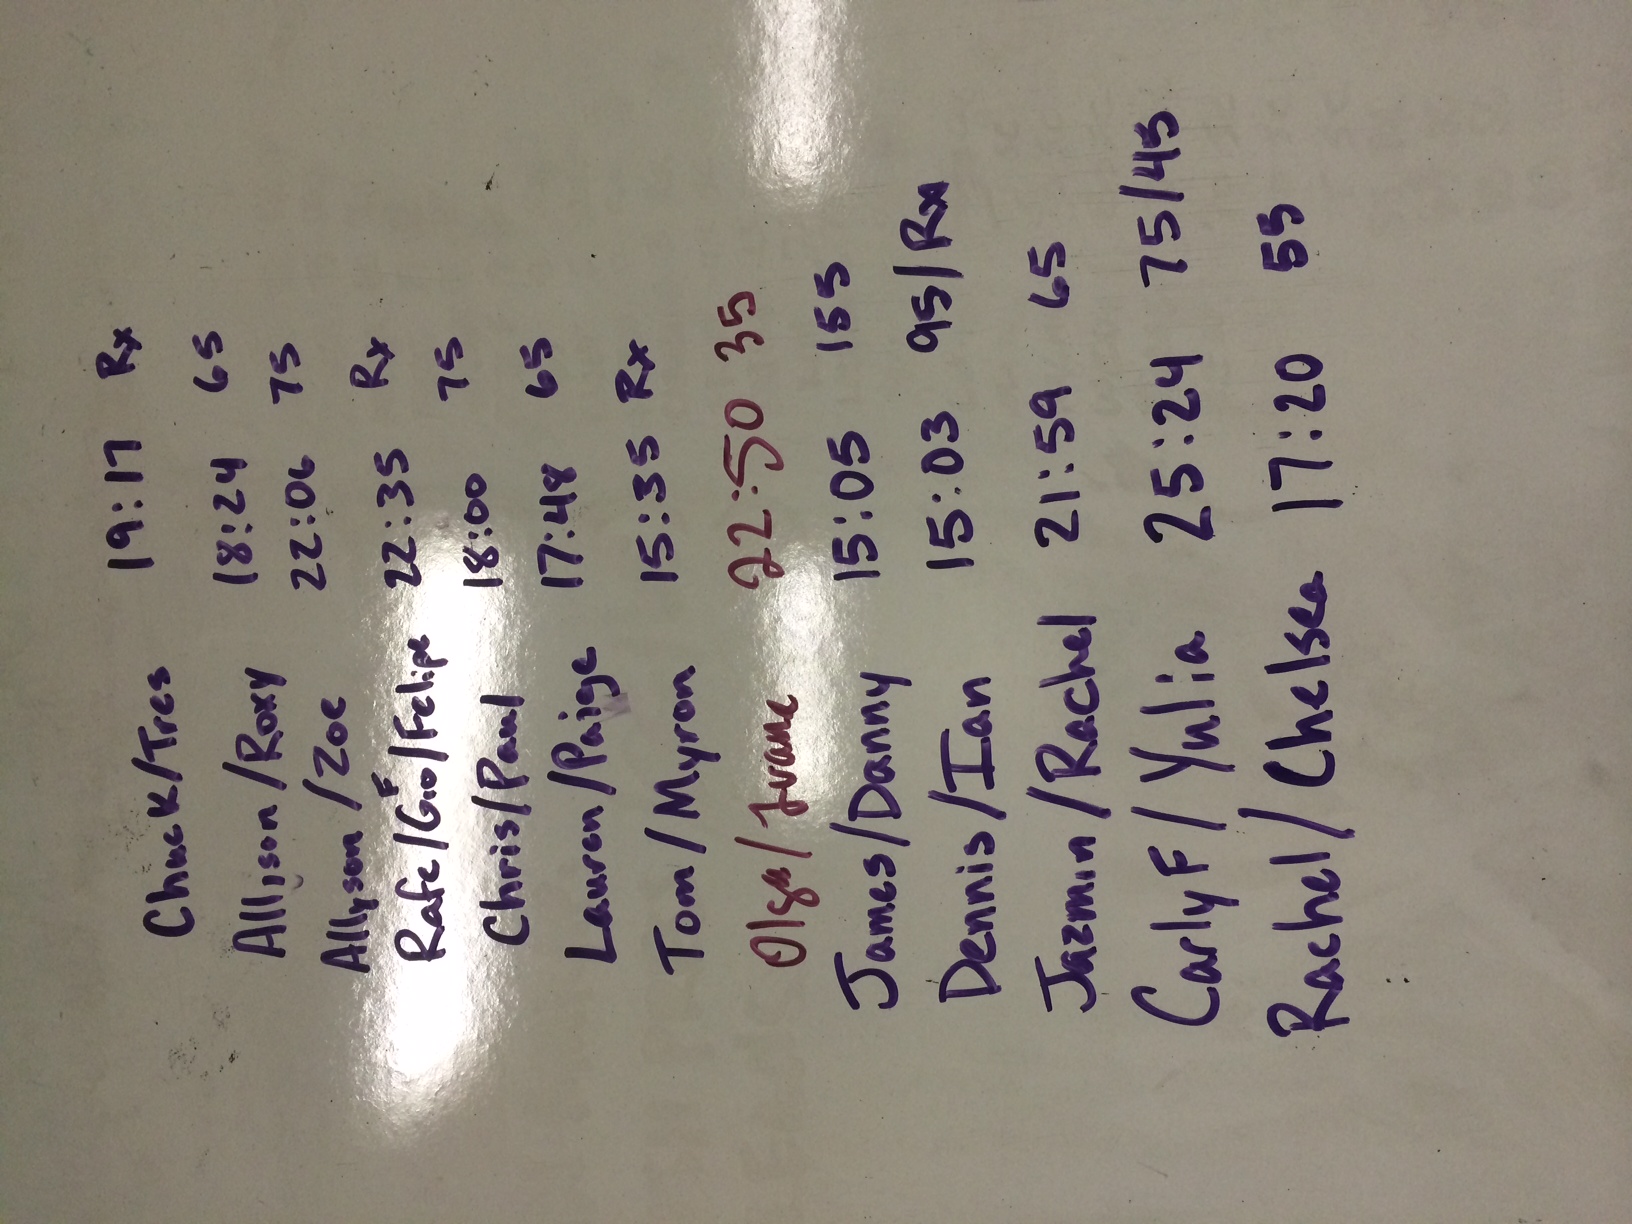 Chuck/Tres 19:17 Rx
Allison/Roxy 18:24 65
Allyson/Zoe 22:06 75
Rafe/Gio F/Felipe 22:35 Rx
Chris/Paul 18:00 75
Lauren/Paige 17:48 65
Tom/Myron 15:35 Rx
Olga/Ivane 22:50 35
James/Danny 15:05 155
Dennis/Ian 15:03 95/Rx
Jazmin/Rachel 21:59 65
Carly F/Yulia 25:24 75/45
Rachel/Chelsea 17:20 55